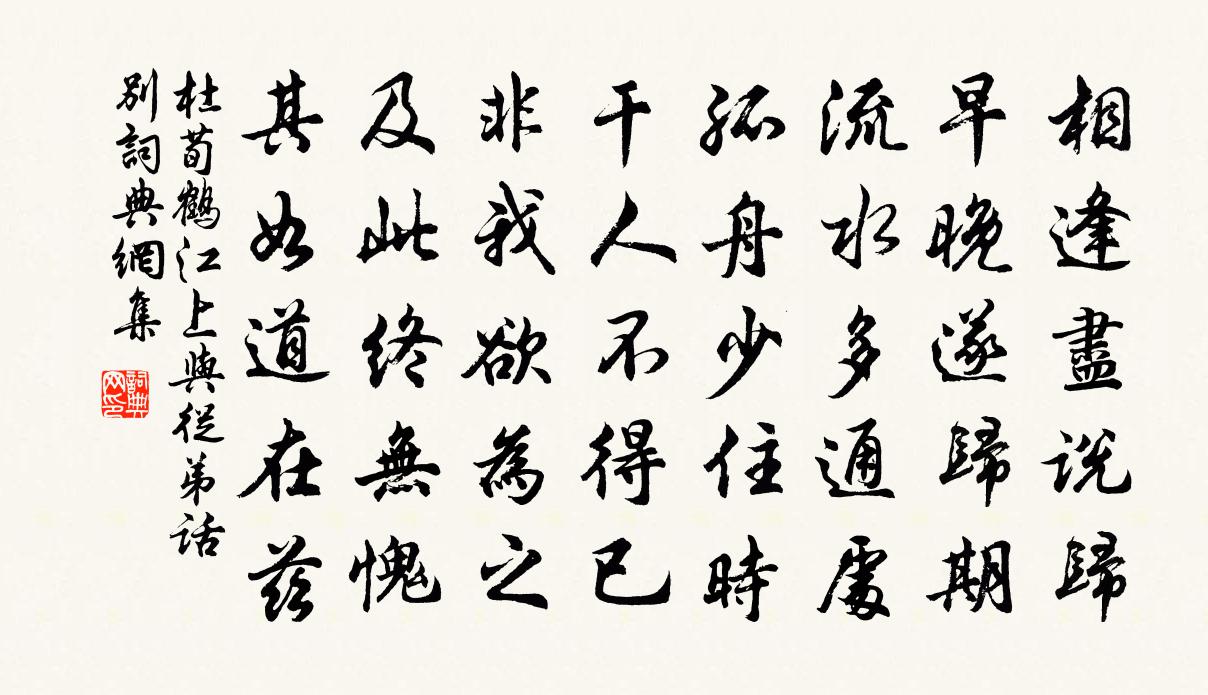 相逢盡說歸
早晚遂歸期
流水多通處
孤舟少住時
干人不得已
非我欲為之
及此終無愧
其如道在茲
杜荀鶴江上與從弟話
別詞典網集
詞典
网印